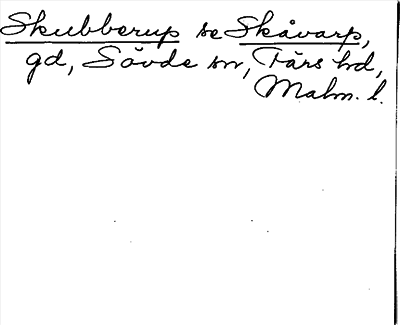 Skubberup se Skåvarp,
gd, Sövde sn, Färs hd,
Malm. l.